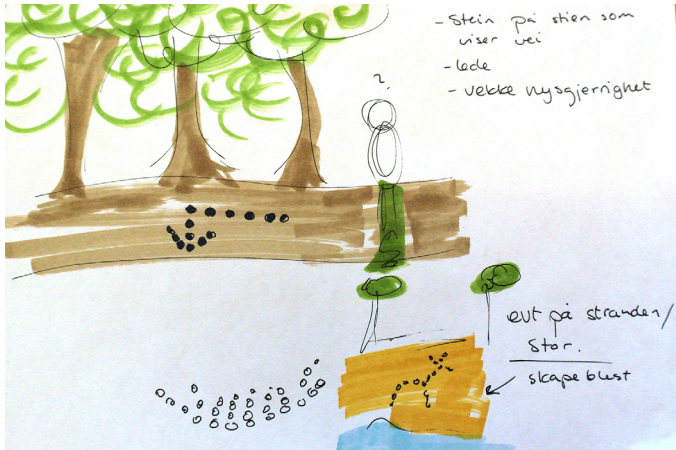 - Stein på stien som
viser vei
- lede
- vekke nysgjerrighet
?
evt på stranden/
stor.
skape blest